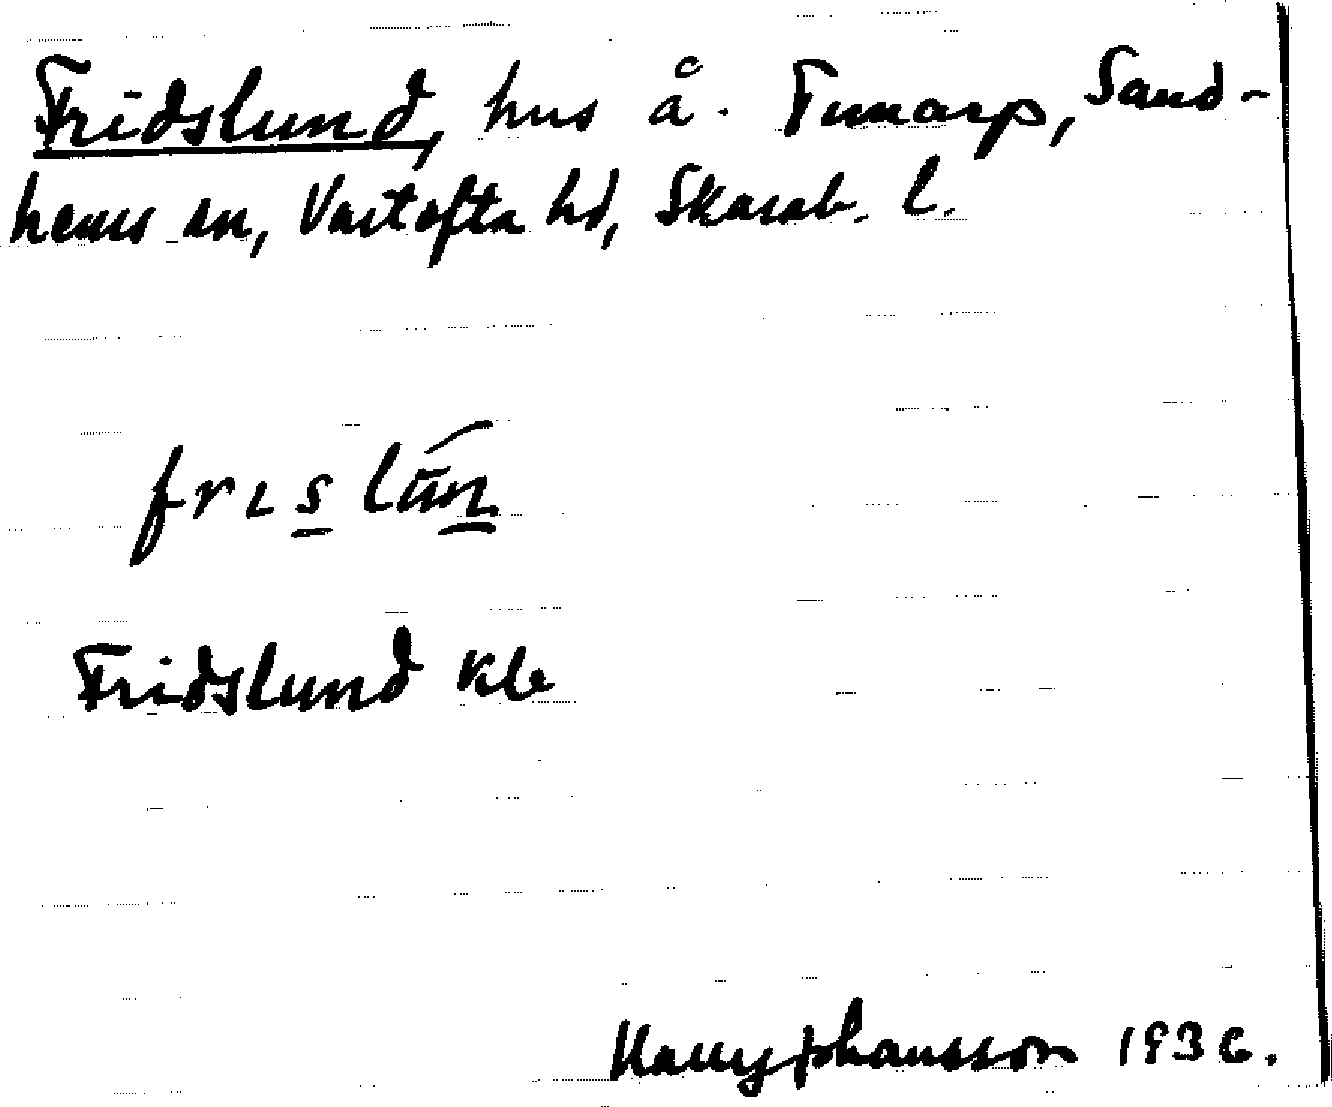 Fridslund, hus å. Tunarp, Sand-
hems sn, Vartofta hd, Skarab. l.
frıs lūn
Fridslund kb
Harry Johansson 1936.